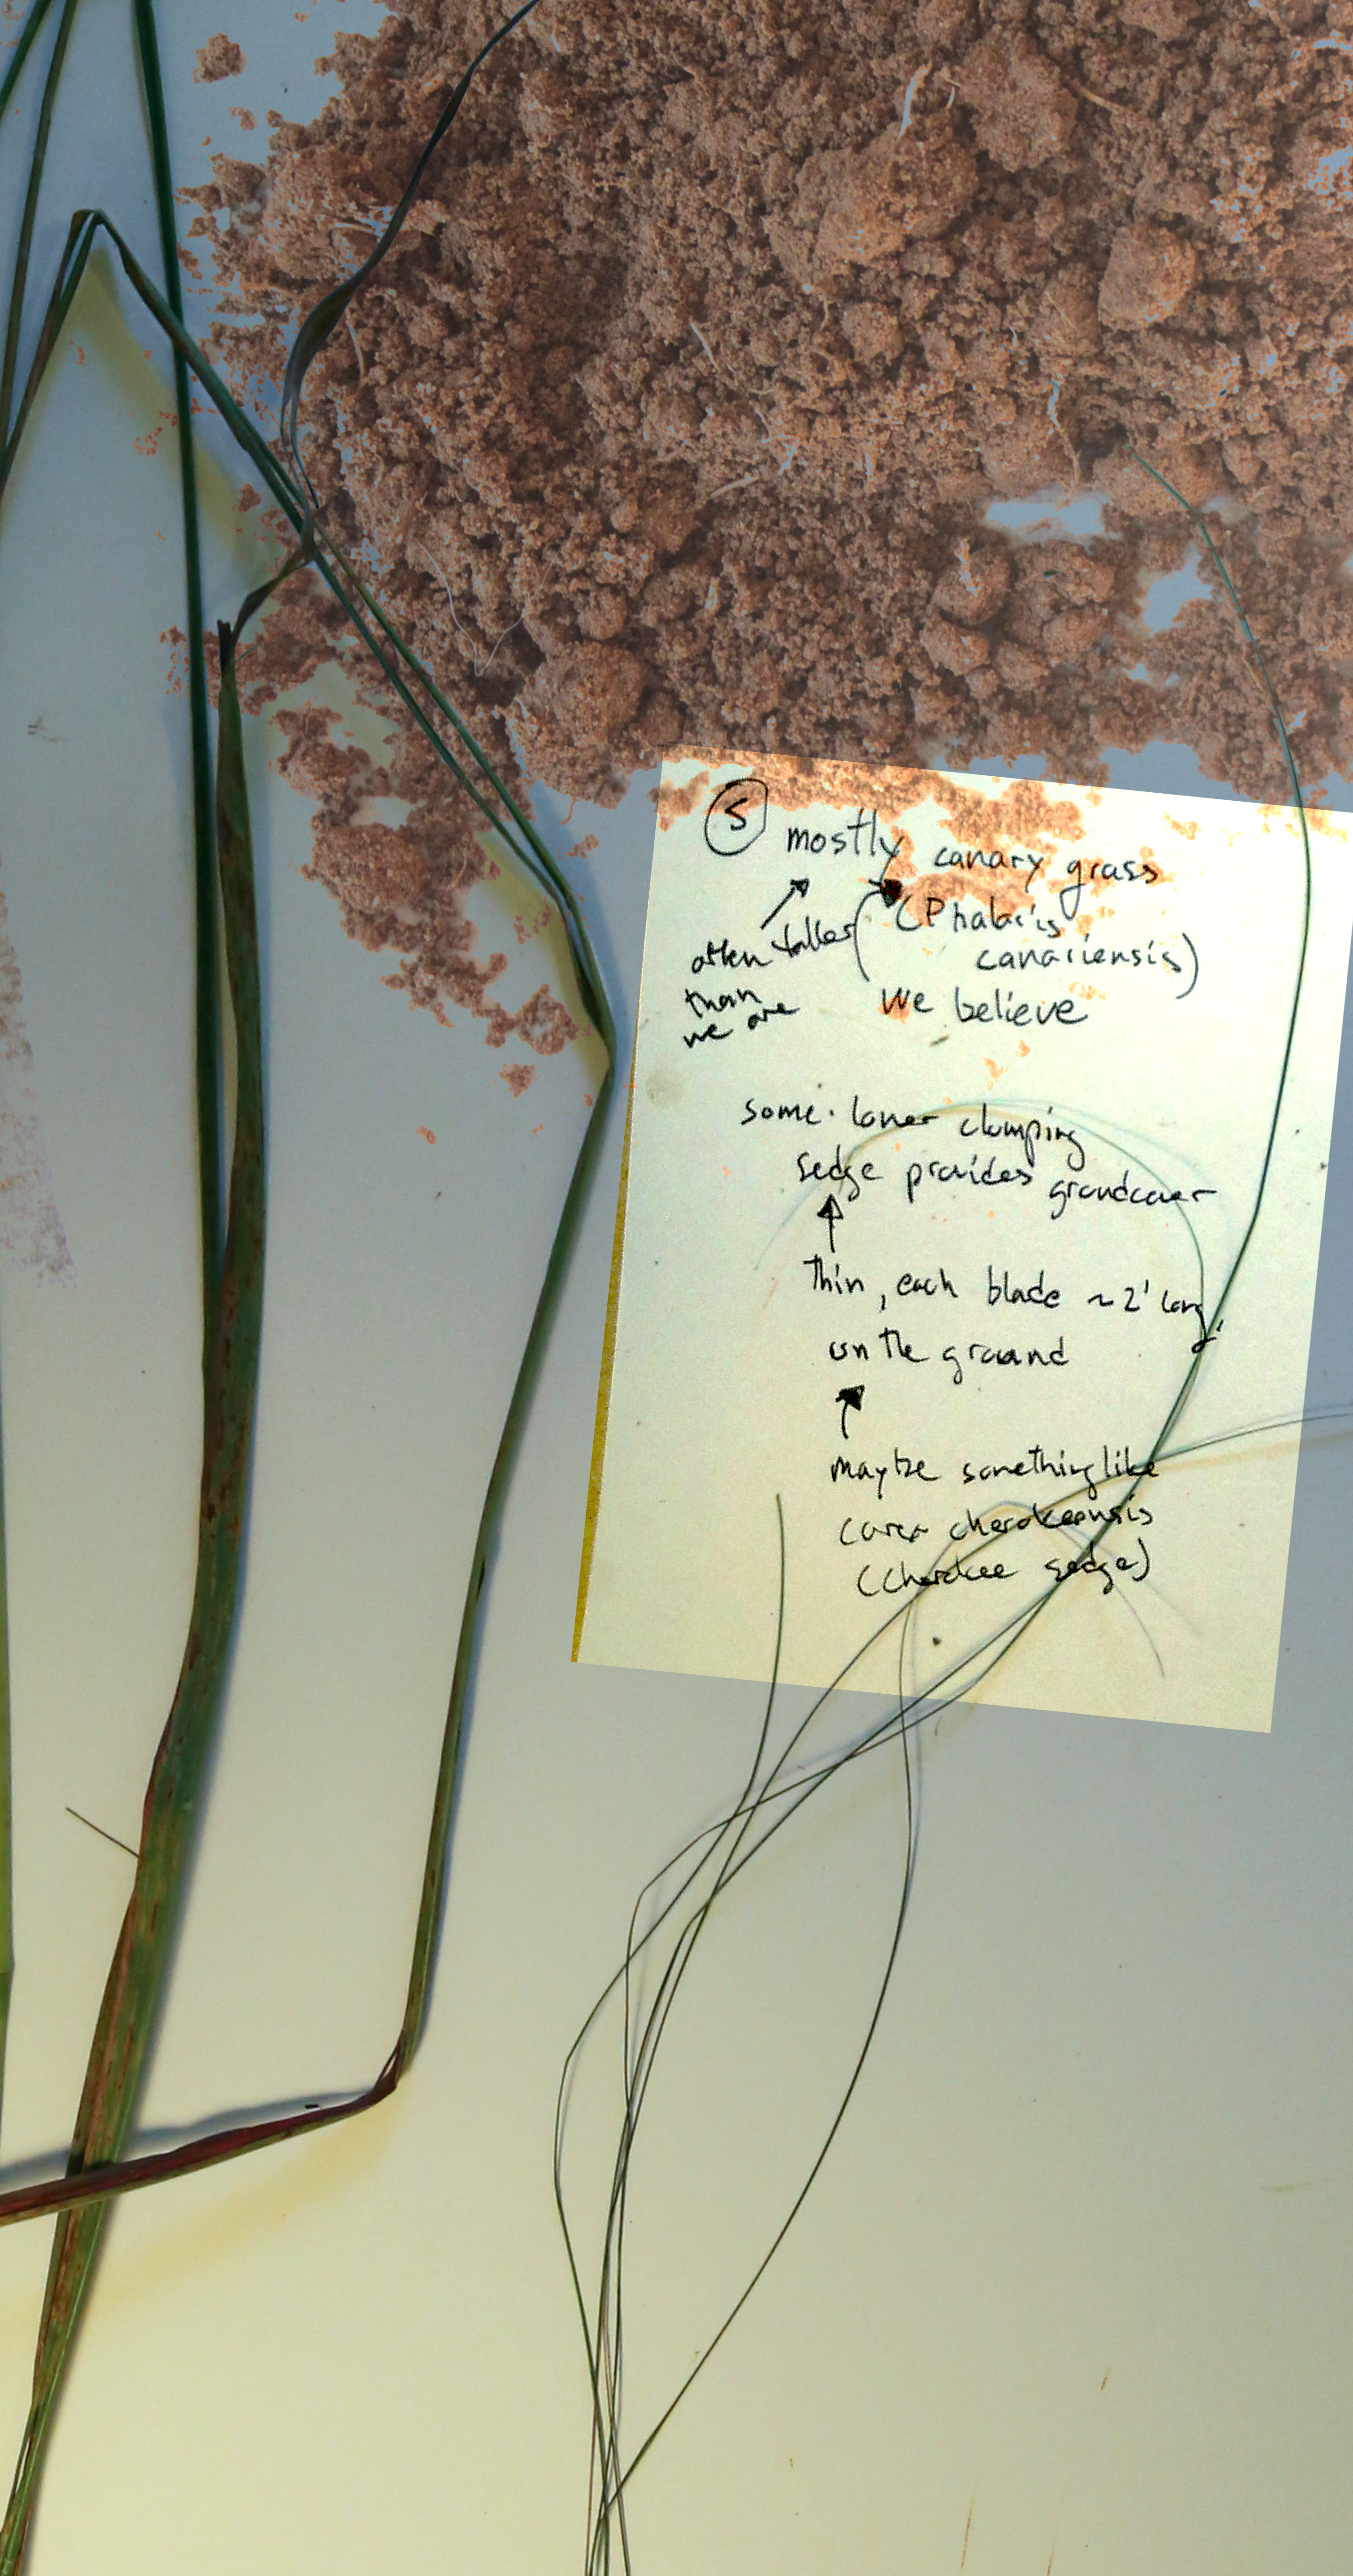 5
mostly canary grass
(Phalaris
canariensis)
often taller
than
we are
We believe
some lower clumping
sedge provides groundcover
Thin, each blade ~ 2' long
on the ground
maybe something like
Carex cherokeensis
(cherokee sedge)